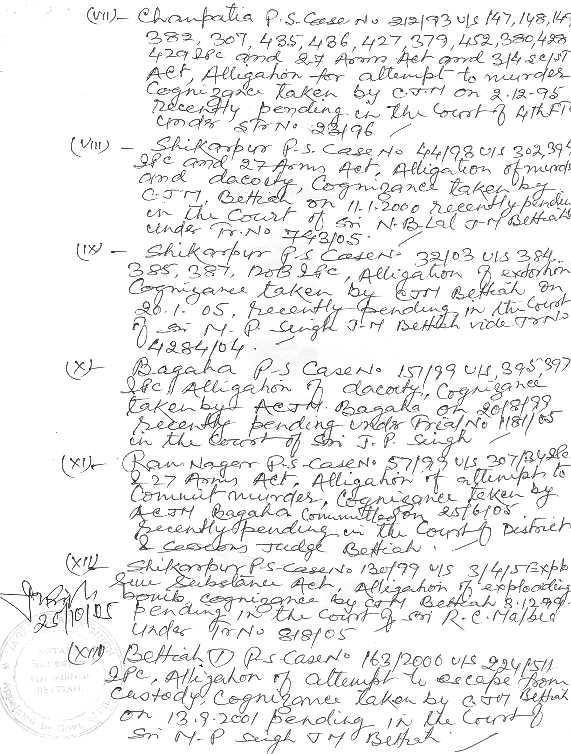 (VII)- Chanpatia P.S. Case No 212/93 u/s 147, 148, 149
382, 307, 435, 436, 427, 379, 452, 380, 428
429 IPC and 27 Arms Act and 3/4 SC/ST
Act, Alligation for attempt to murder
Cognizance taken by CJM on 2.12.95
recently pending in the Court of 4th FTC
under STr No 23/96
(VIII) - Shikarpur P.S. Case No 44/98 u/s 302, 394
IPC and 27 Arms Act, Alligation of murder
and dacoity, Cognizance taken by
C.J.M. Bettiah on 11.1.2000 recently pending
in the Court of Sri N.B. Lal J.M Bettiah
under Tr. No 743/05.
(IX) - Shikarpur P.S Case No 32/03 u/s 384
385, 387, 120B IPC, Alligation of extortion
Cognizance taken by CJM Bettiah on
20.1.05, recently pending in the Court
of Sri M.P Singh J.M Bettiah vide Tr No
4284/04.
(X) - Bagaha P.S Case No 157/99 u/s, 395, 397
IPC, Alligation of dacoity, Cognizance
taken by ACJM. Bagaha on 20/8/99
recently pending under Trial No 1181/05
in the Court of Sri J.P. Singh
(XI)- Ram Nagar P.S. Case No 57/99 u/s 307/34 IPC
& 27 Arms Act, Alligation of attempt to
Commit murder, Cognizance taken by
ACJM Bagaha Committed on 25/6/05
recently pending in the Court of District
& Sessions Judge Bettiah.
(XII) - Shikarpur P.S. Case No 130/99 u/s 3/4/5 Explo
sive Substance Act, Alligation of exploding
bomb cognizance by CJM Bettiah
pending in the Court of Sri R.C.
under Tr No 818/05
25/10/05
(XIII) Bettiah (T) P.S Case No 163/2000 u/s 224/511
IPC, Alligation of attempt to escape from
Custody, Cognizance taken by CJM Bettiah
on 13.9.2001 pending in the Court of
Sri M.P Singh JM Bettiah.